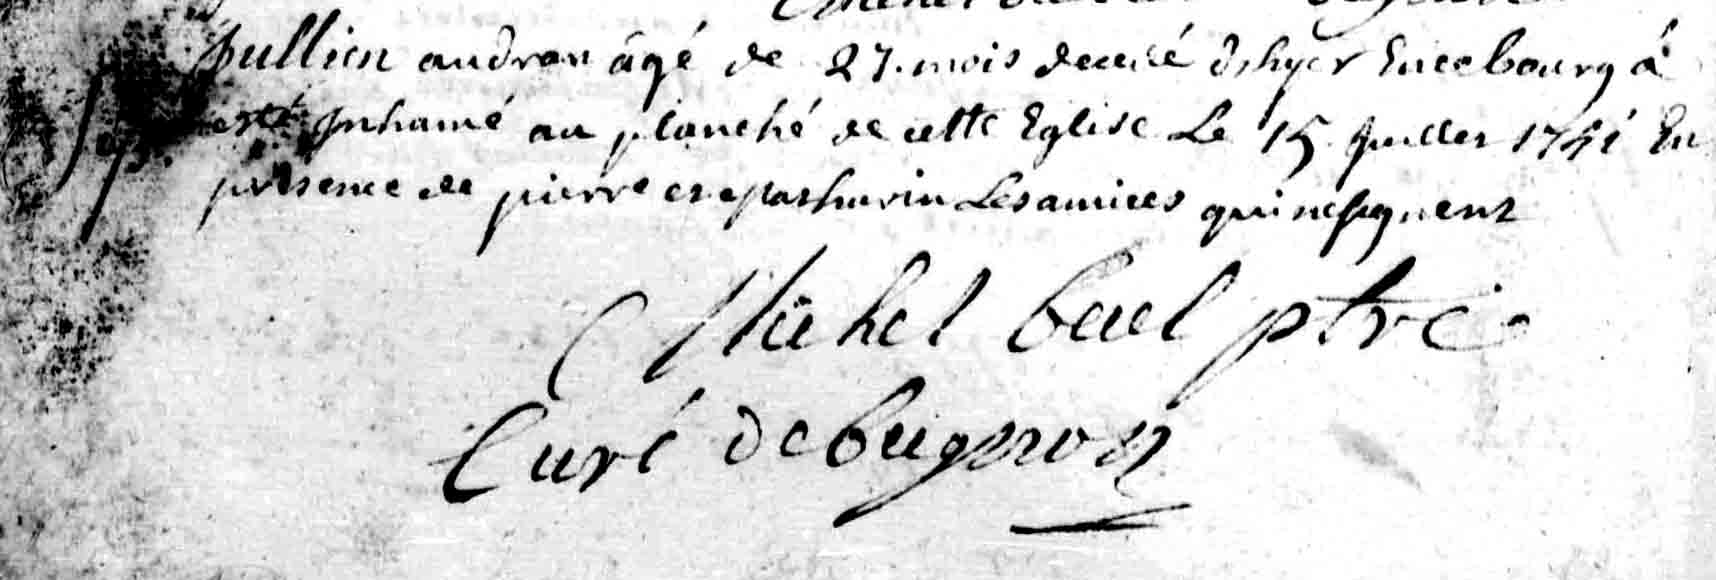 Jullien audran âgé de 27. mois decedé d'shyer En ce bourg á
esté Jnhamé au planché de cette Eglise Le 15 Juillet 1741 En
presence de pierre et Mathurin Les amices qui ne signent
Michel bael ptre
Curé de beignon